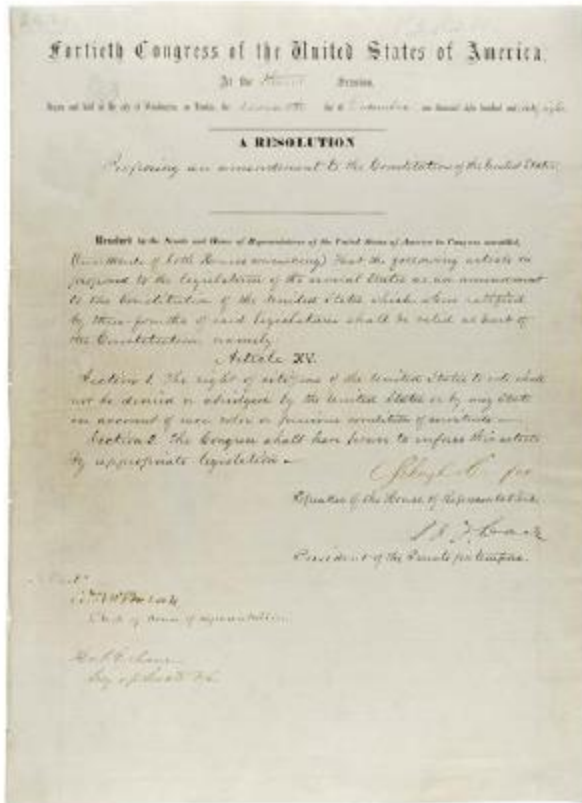 Fortieth Congress of the United States of America;
At the Third Session,
Begun and held at the city of Washington, on Monday, the seventh day of December, one thousand eight hundred and sixty-eight.
A RESOLUTION
Proposing an amendment to the Constitution of the United States.
Resolved by the Senate and House of Representatives of the United States of America in Congress assembled,
(two-thirds of both Houses concurring) That the following article be
proposed to the legislatures of the several States as an amendment
to the Constitution of the United States which, when ratified
by three-fourths of said legislatures shall be valid as part of
the Constitution, namely
Article XV.
Section 1. The right of citizens of the United States to vote shall
not be denied or abridged by the United States or by any State
on account of race, color, or previous condition of servitude—
Section 2. The Congress shall have power to enforce this article
by appropriate legislation—
Speaker of the House of Representatives.
President of the Senate pro tempore.
Attest
Clerk of House of Representatives